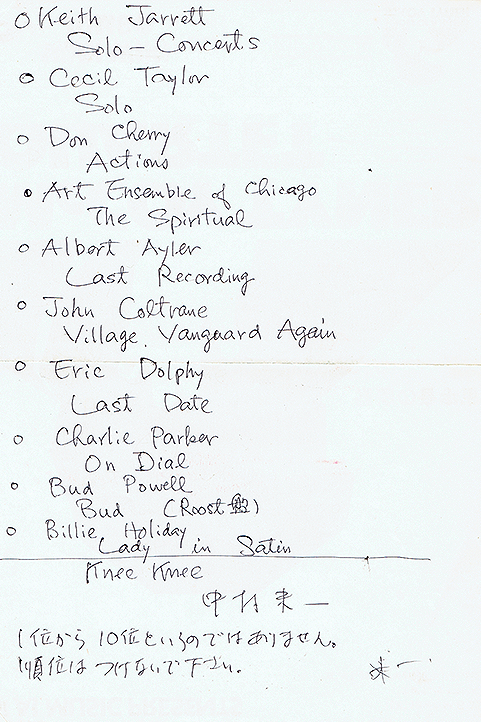 ○ Keith Jarrett
Solo - Concerts
○ Cecil Taylor
Solo
○ Don Cherry
Actions
○ Art Ensemble of Chicago
The Spiritual
○ Albert Ayler
Last Recording
○ John Coltrane
Village Vanguard Again
○ Eric Dolphy
Last Date
○ Charlie Parker
On Dial
○ Bud Powell
Bud (Roost盤)
○ Billie Holiday
Lady in Satin
Knee Knee
中村 一
1位から10位というのではありません。
順位はつけないで下さい。